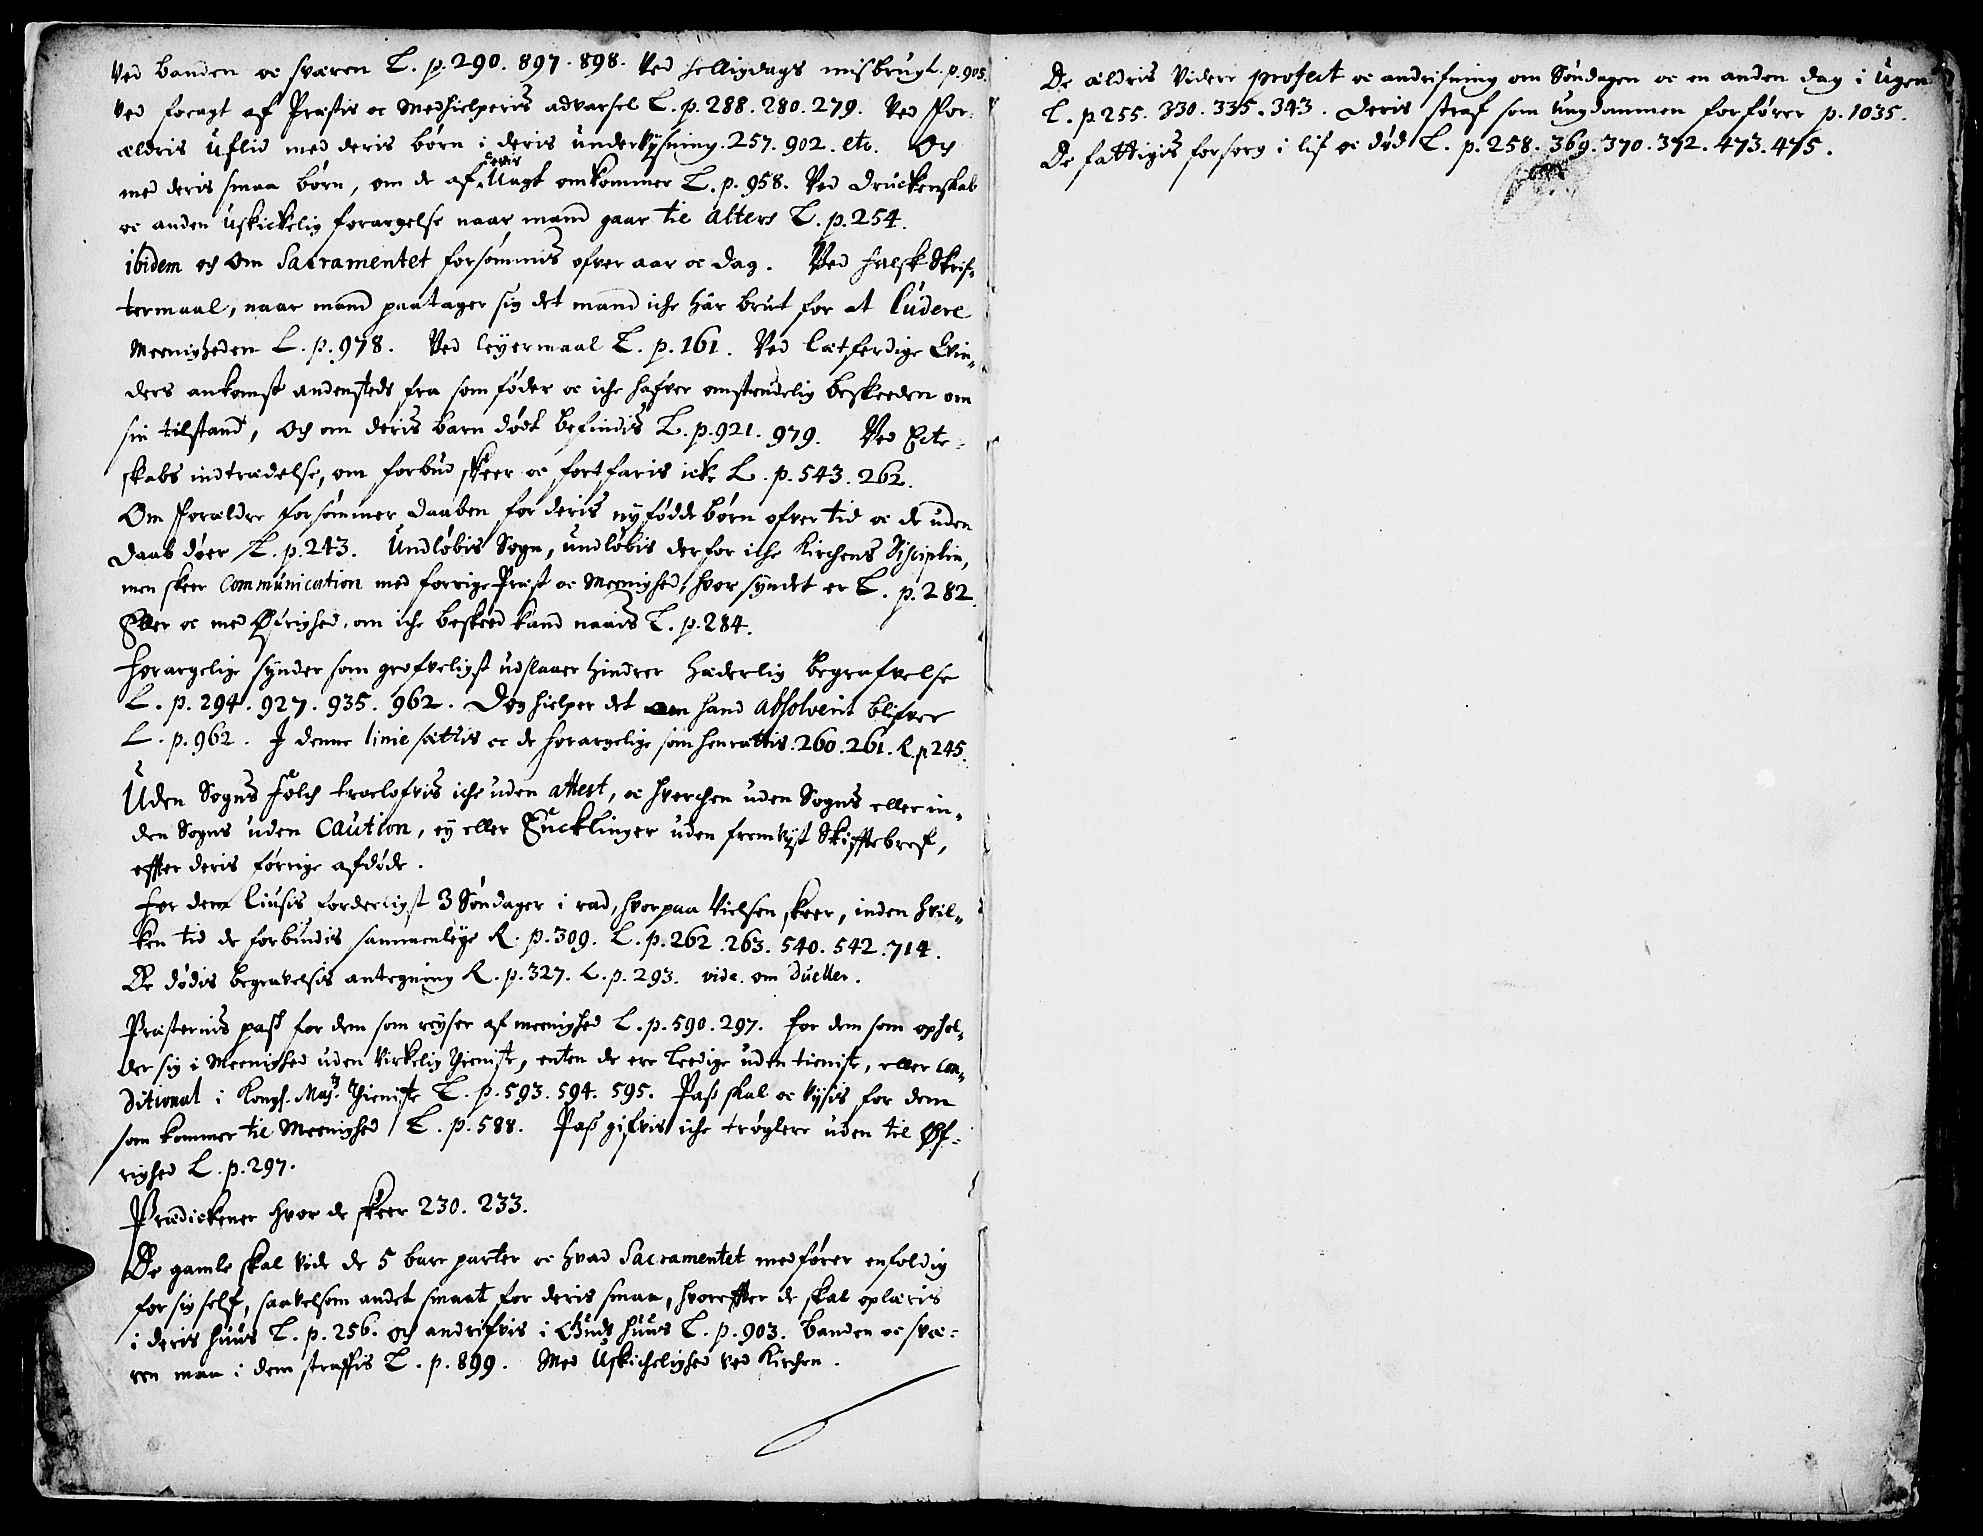 Ved banden oc sværen L. p. 290. 897. 898. Ved helligdags misbrug L. p. 905.
Ved foragt af Præstis oc Medhielperis advarsel L. p. 288. 280. 279. Ved For-
ældris Uflid med deris børn i deris underVysning. 257. 902. etc. Och
med deris smaa børn, om de af deris Uagt omkommer L. p. 958. Ved Druckenskab
oc anden Uskickelig forargelse naar mand gaar til Alters L. p. 254.
ibidem och Om Sacramentet forsømmis ofver aar oc dag. Ved falsk Skrif-
termaal, naar mand paatager sig det mand iche har brut for at ludere
Meenigheden L. p. 978. Ved leyermaal L. p. 161. Ved Lætferdige Qvin-
ders ankomst andensteds fra som føder oc iche hafver omstendelig beskeeden om
sin tilstand, Och om deris barn dødt befindis L. p. 921. 979. Ved Ecte-
skabs indtrædelse, om forbud skeer oc fortfaris icke L. p. 543. 262.
Om Forældre forsømmer Daaben for deris nyfødde børn ofver tid oc de uden
Daab døer L. p. 243. Undløbis Sogn, undløbis derfor iche Kirchens Disciplin,
men skeer Communication med forrige Præst oc Meenighed, hvor syndet er L. p. 282.
Eller oc med Øfrighed, om iche beskeed kand naais L. p. 284.
Forargelige synder som grofveligst udslaaer hindrer hæderlig begrafvelse
L. p. 294. 927. 935. 962. Dog hielper det om hand absolverit blifver
L. p. 962. I denne linie sættis oc de forargelige som henrættis. 260. 261. R. p 245.
Uden Sogns Folch troelofvis iche uden attest, oc hverchen uden Sogns eller in-
den Sogns uden Caution, ey eller Encklinger uden fremVyst Skifftebref,
effter deris forrige afdøde.
For dem liusis forderligst 3 Søndager i rad, hvorpaa Vielsen skeer, inden hvil-
ken tid de forbindis sammenleye R. p. 309. L. p. 262. 263. 540. 542. 714.
De dødis begravelsis antegning R. p. 327. L. p. 293. vide. om Dueller.
Præsternis pass for dem som reyser af meenighed L. p. 590. 297. For dem som ophol-
der sig i Meenighed uden Virkelig Thieniste, enten de ere leedige uden tieniste, eller Con-
ditionat i Kongl. Majts Thieniste L. p. 593. 594. 595. Pass skal oc Vysis for dem
som kommer til Meenighed L. p. 588. Pass gifvis iche trøglere uden til Øf-
righed L. p. 297.
Prædickener hvor de skeer 230. 233.
De gamle skal vide de 5 bare parter oc hvad Sacramentet medfører enfoldig
for sig self, saavelsom andet smaat for deris smaa, hvoreffter de skal oplæris
i deris huus L. p. 256. Och andrifvis i Guds huus L. p. 903. Banden oc svæ-
ren maa i dem straffis L. p. 899. Med Uskichelighed ved Kirchen.
De ældris Videre profect oc andrifning om Søndagen oc en anden dag i Ugen
L. p 255. 330. 335. 343. Deris straf som ungdommen forfører p. 1035.
De fattigis forsorg i lif oc død L. p. 258. 369. 370. 372. 473. 475.